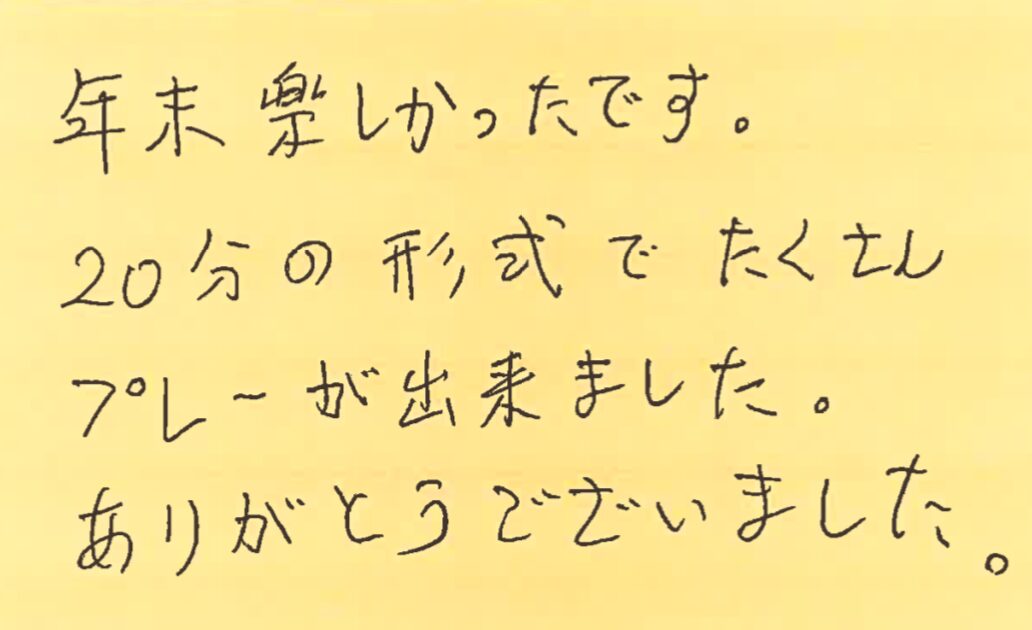 年末楽しかったです。
20分の形式でたくさん
プレーが出来ました。
ありがとうございました。